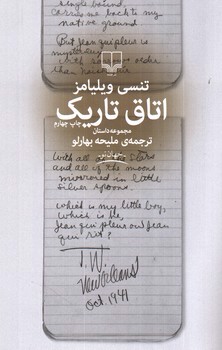 bound,
Carries me back to my
native ground.
But Jean qui pleurs is
mysterious
تنسی ویلیامز
اتاق تاریک
چاپ چهارم
مجموعه‌داستان
ترجمه‌ی ملیحه بهارلو
جهان‌نو
With all of the stars
and all of the moons
mirrored in little
silver spoons.
Which is my little boy,
which is he,
jean qui pleurs ou jean
qui rit?
T.W.
New Orleans
Oct 1941